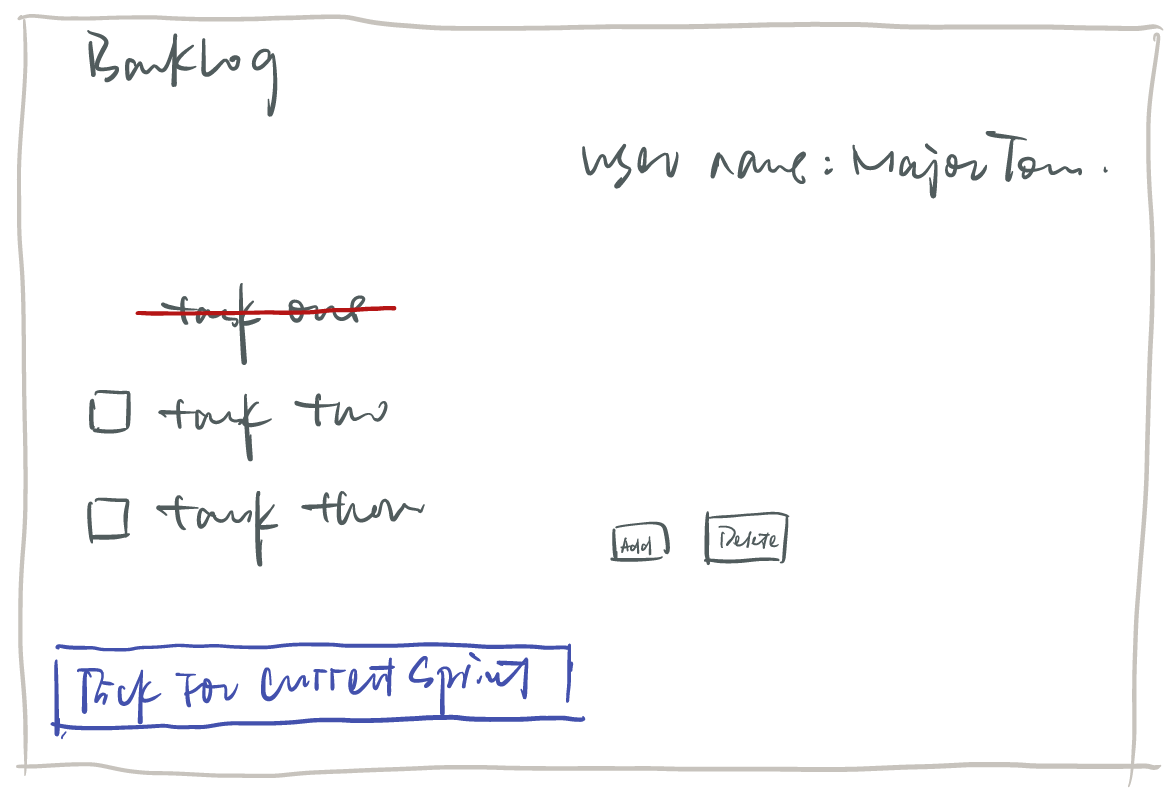 Backlog
user name: MajorTom.
task one
task two
task three
Add
Delete
Pick For Current Sprint